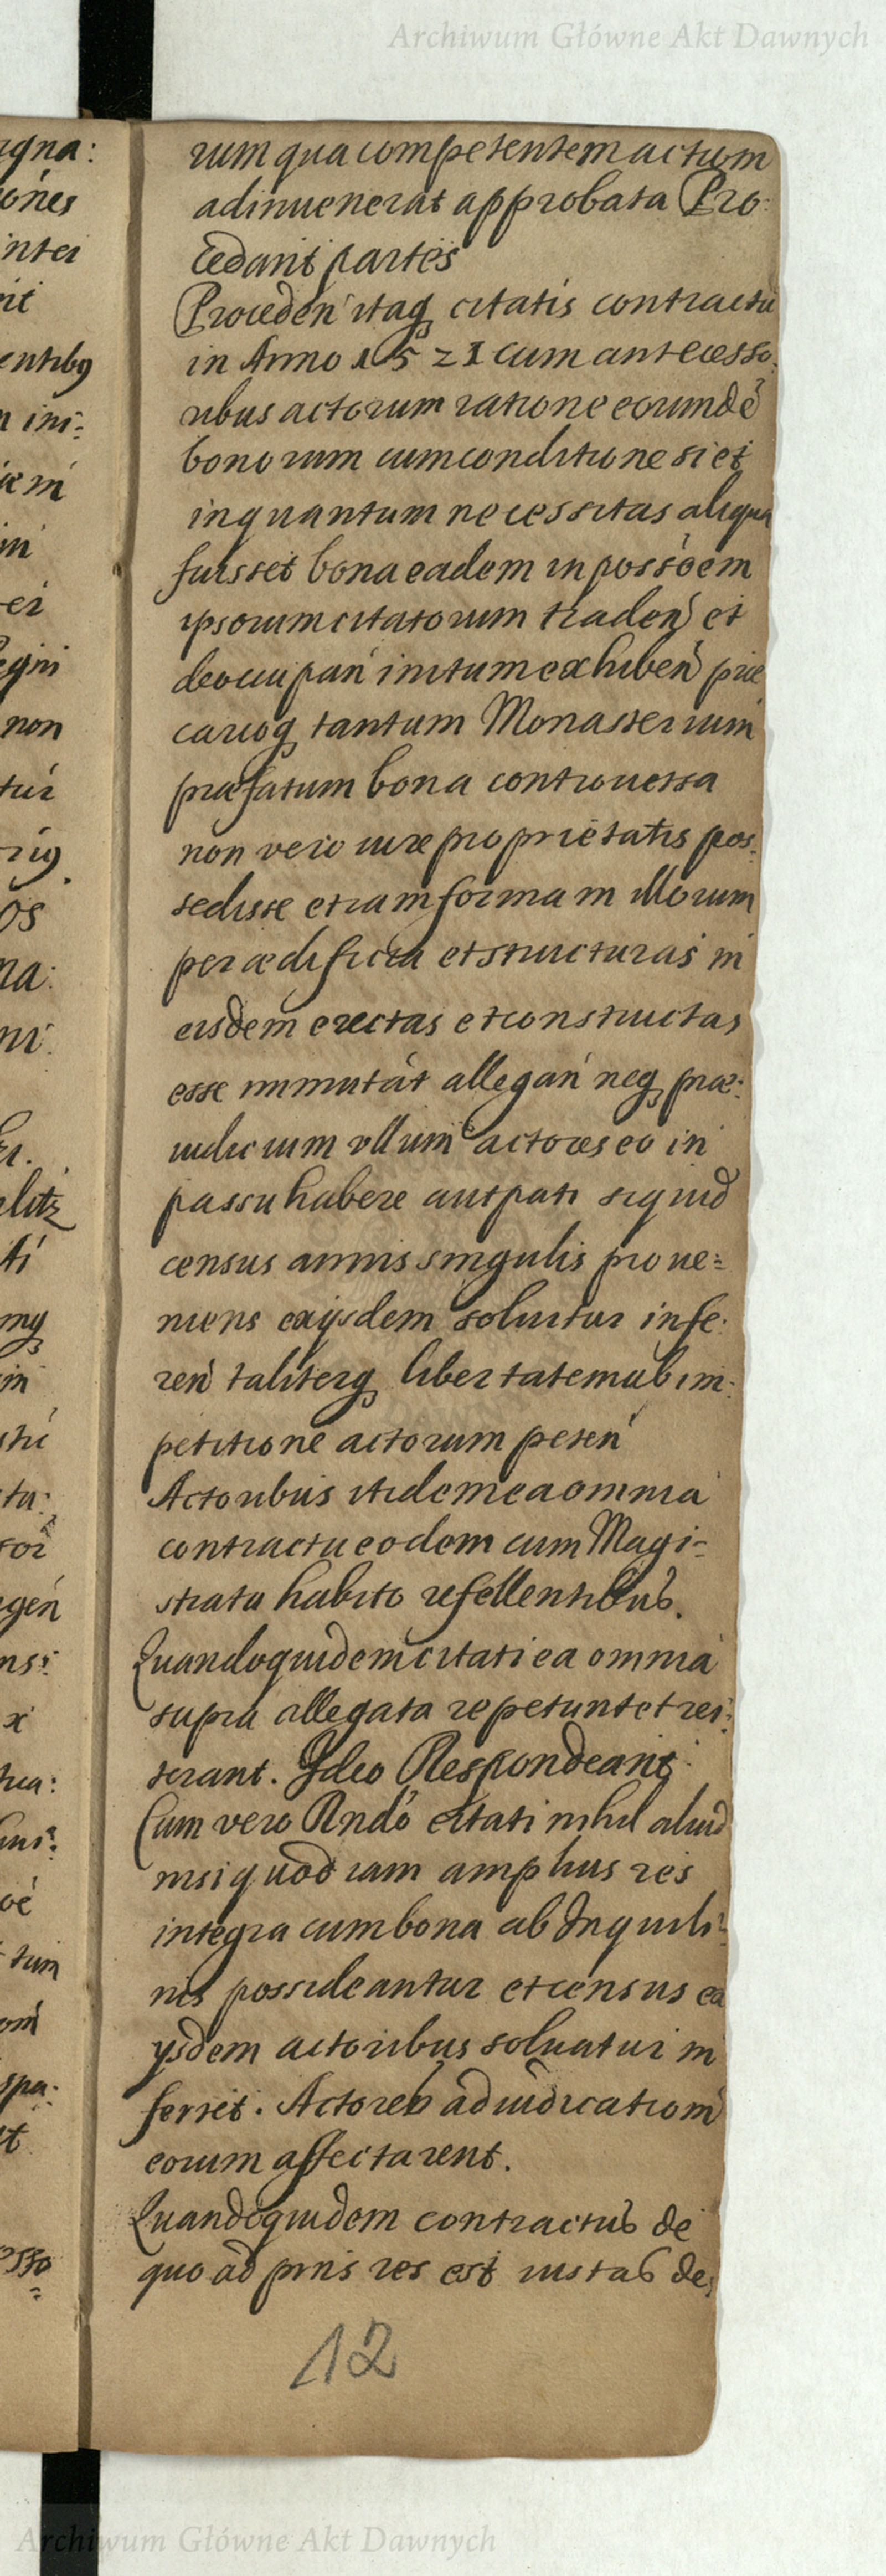 Archiwum Główne Akt Dawnych
rum qua competentem actum
adinuenerat approbata Pro:
cedant partes
Proceden' itaq citatis contractu
in Anno 1521 cum antecesso:
ribus actorum ratione eorundē
bonorum cum conditione si et
inquantum necessitas aliqua
fuisset bona eadem in possōem
ipsorum citatorum traden' et
deoccupan' initum exhiben' præ
carioq tantum Monasterium
præfatum bona controuersa
non vero iure proprietatis pos:
sedisse etiam formam illorum
per ædificia et structuras in
eisdem erectas et constructas
esse immutat allegan' neq præ:
iudicium ullum actores eo in
passu habere aut pati siquid
census annis singulis proue=
niens eiisdem soluitur infe:
ren' taliterq libertatem ab im:
petitione actorum peten'
Actoribus itidem ea omnia
contractu eodem cum Magi=
stratu habito refellentibus.
Quandoquidem citati ea omnia
supra allegata repetunt et rei:
terant. Ideo Respondeant
Cum vero Rndō citati nihil aliud
nisi quod iam amplius res
integra cum bona ab Inquili=
nis possideantur et census ex
ijsdem actoribus soluatur in
ferret. Actores adiudicationē
eorum affectarent.
Quandoquidem contractus de
quo ad prns res est iustas de
12
Archiwum Główne Akt Dawnych